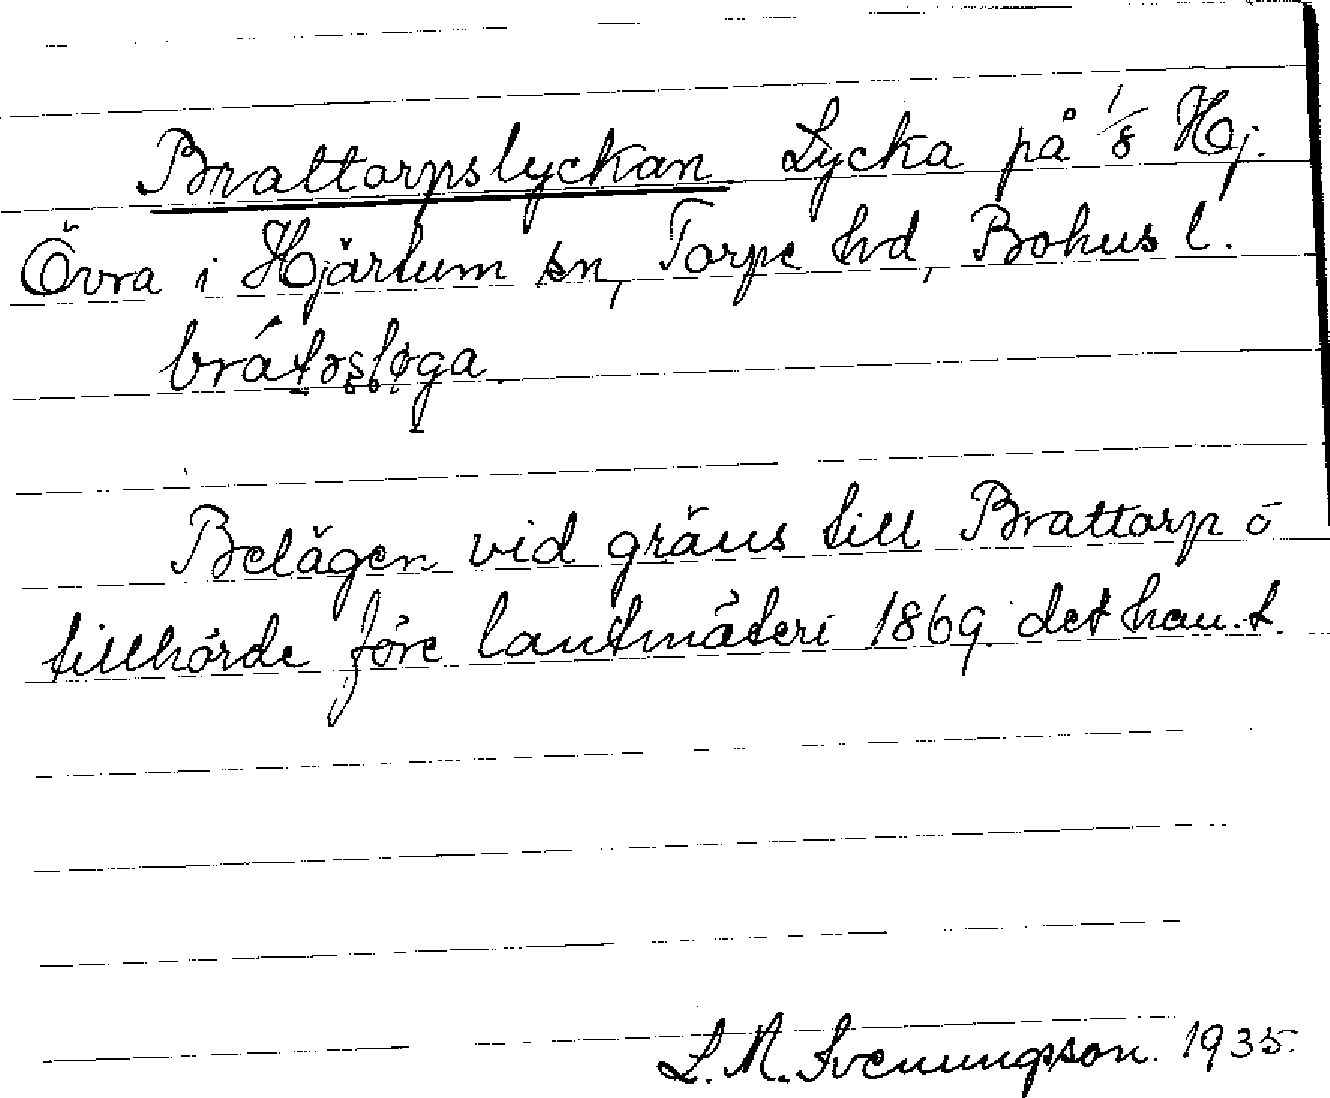 Brattorpslyckan Lycka på 1/8 Hj.
Övra i Hjärtum sn, Torpe hd, Bohus l.
Belägen vid gräns till Brattorp ö
tillhörde före lantmäteri 1869. det hem.t.
L. M. Svenungsson. 1935.